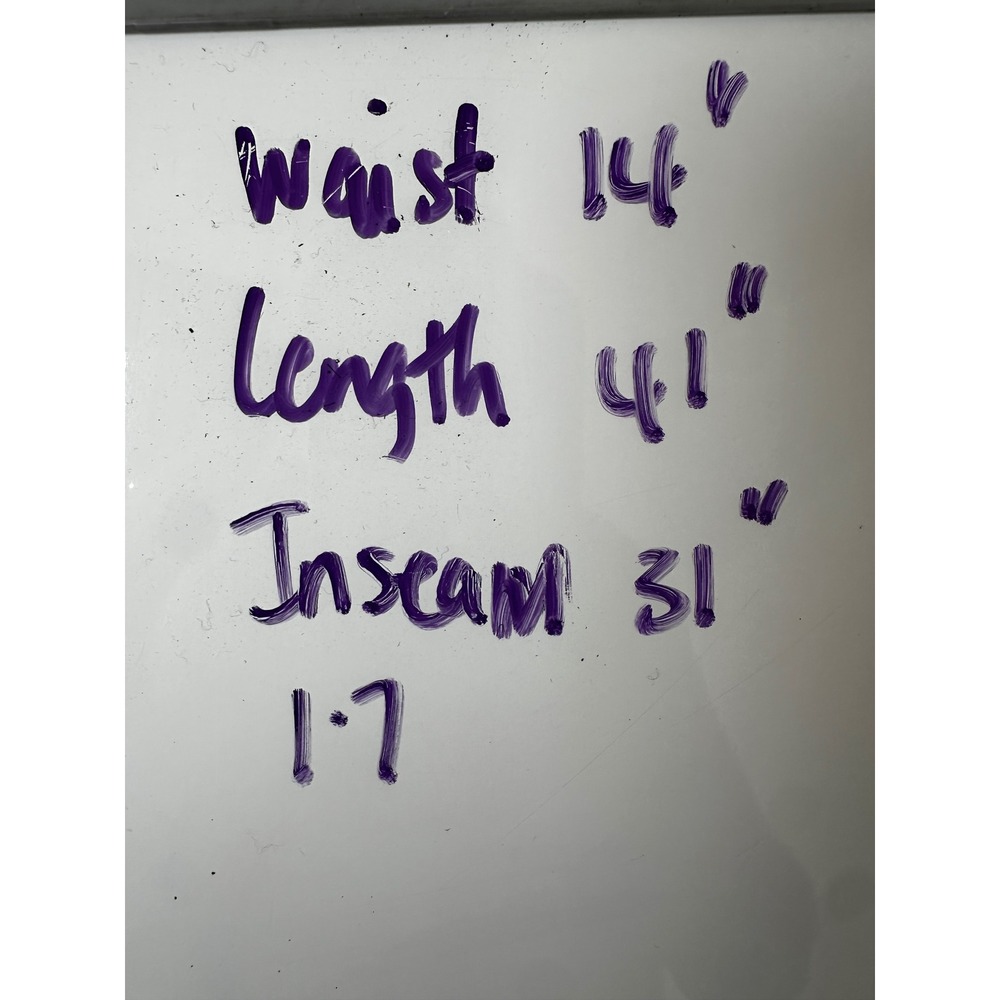 Waist 14"
Length 41"
Inseam 31"
1.7